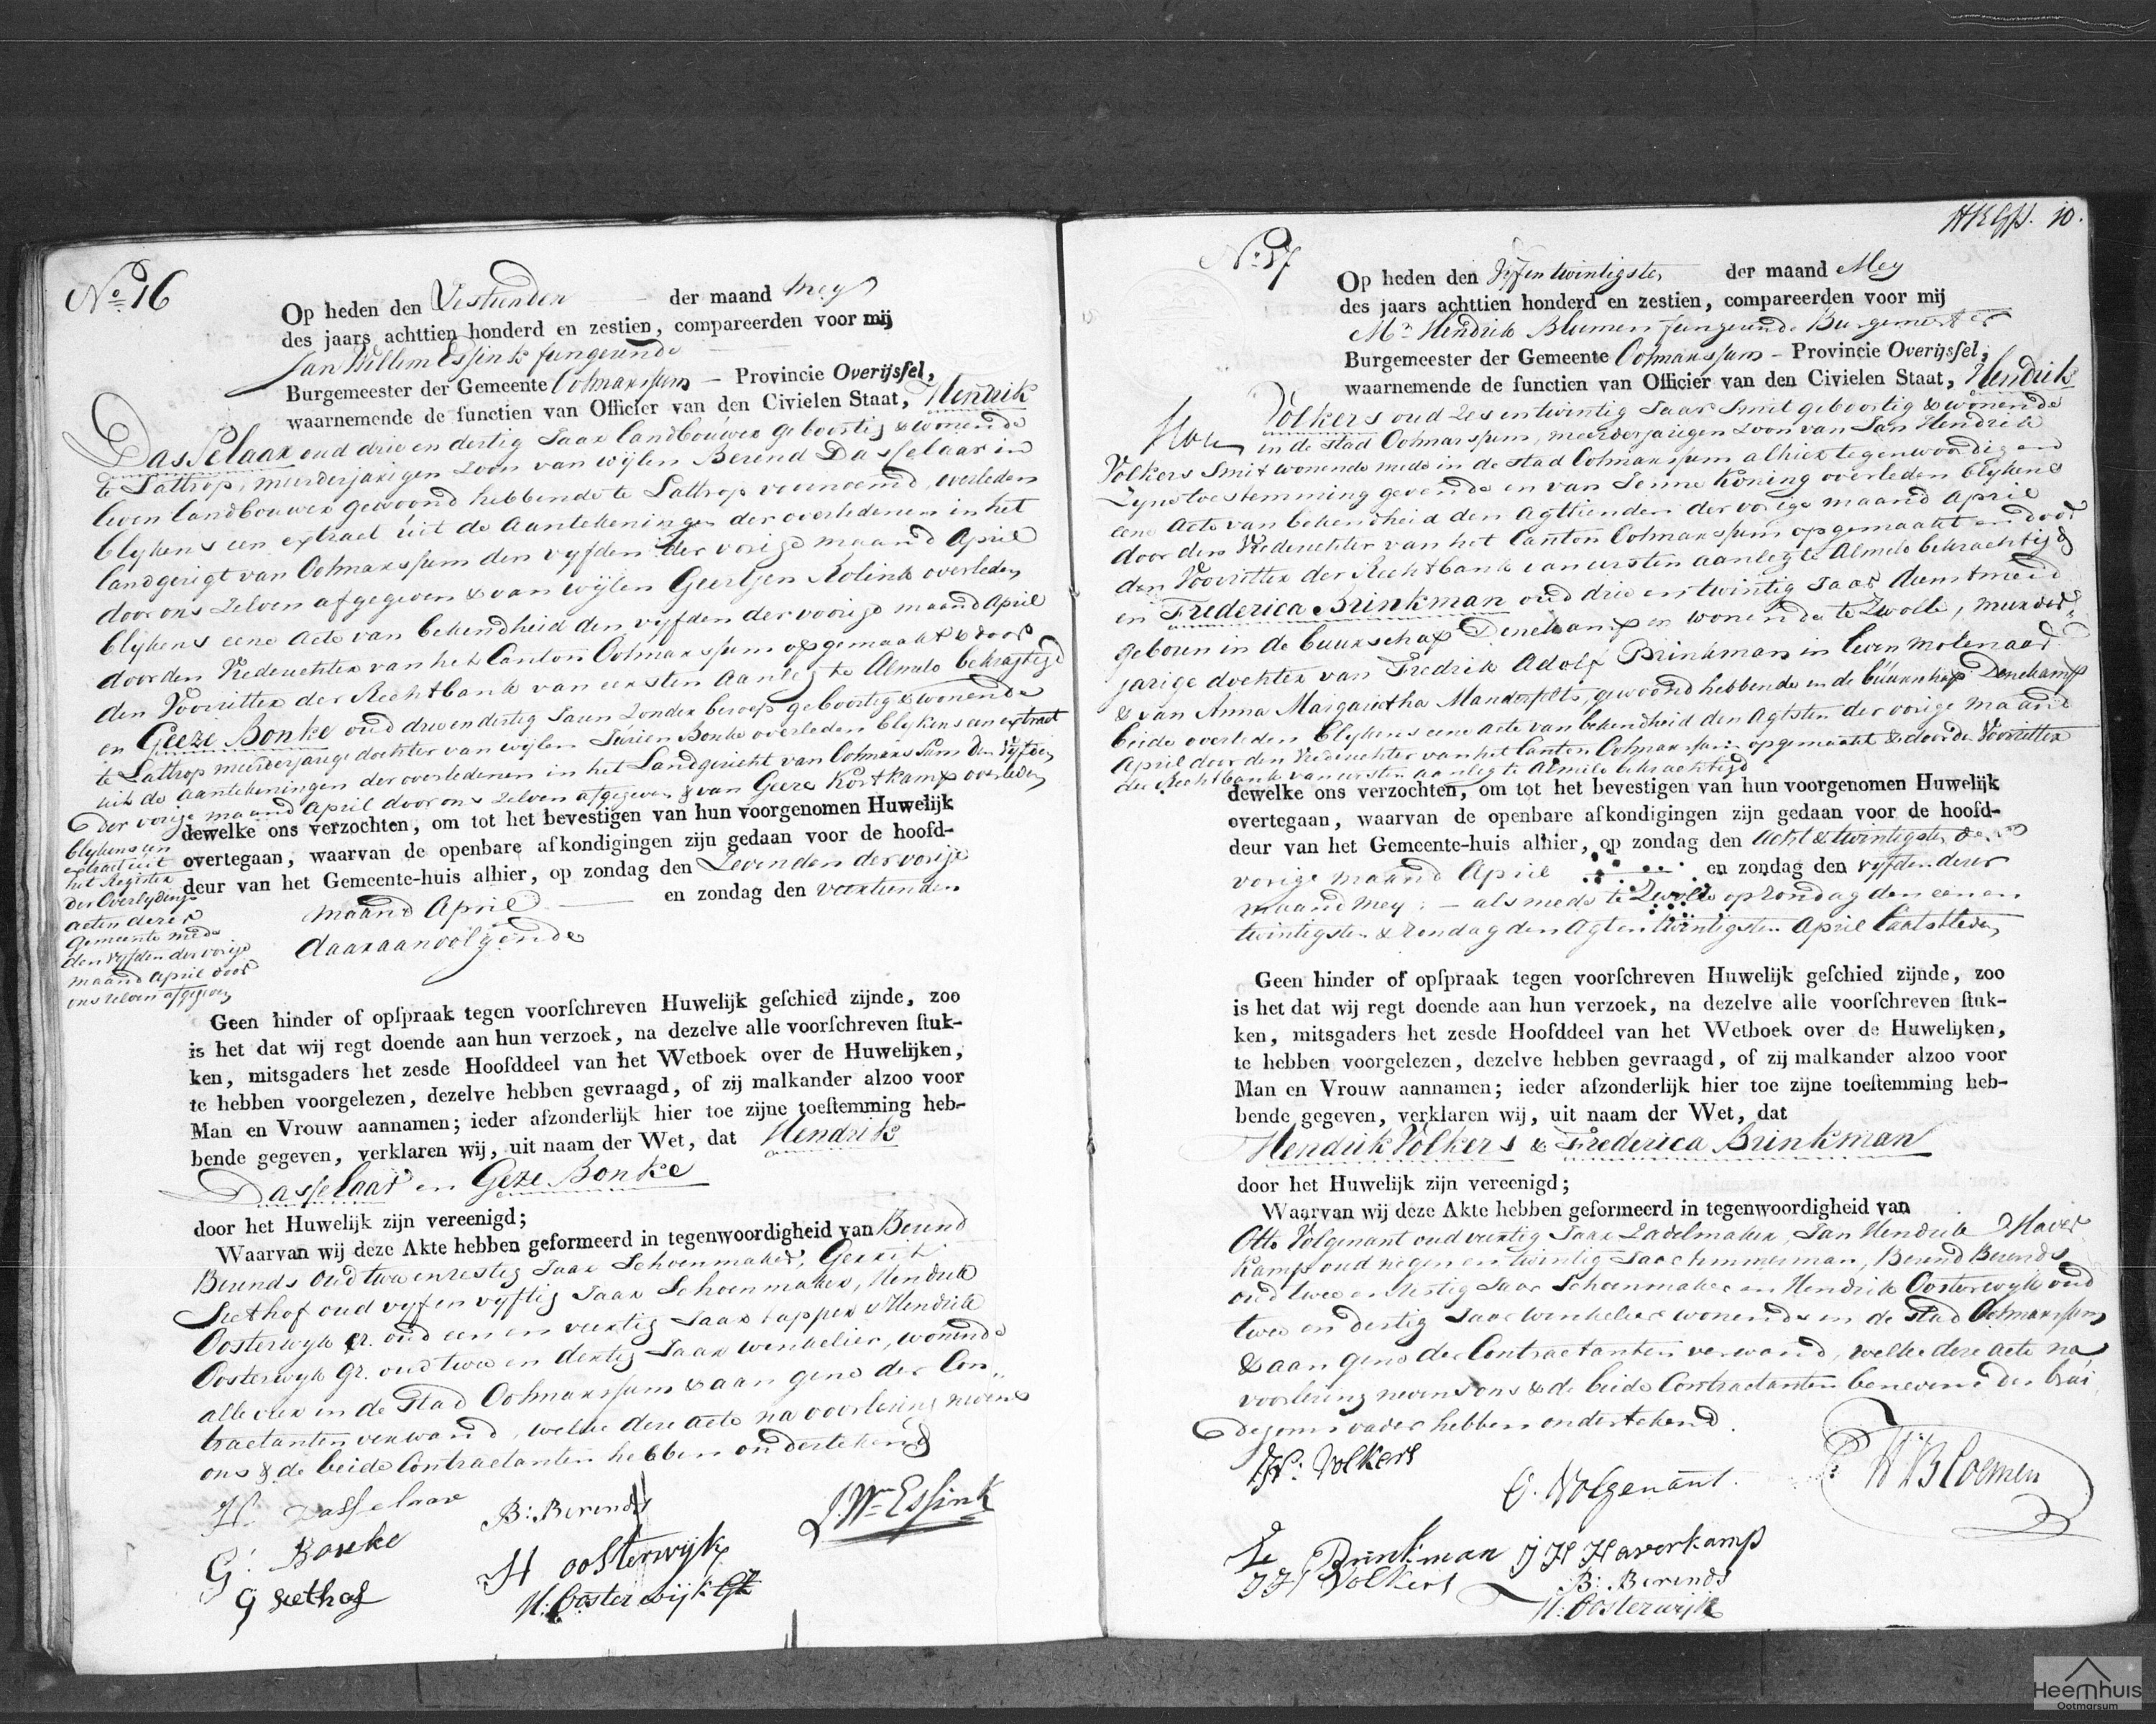 No. 16
Op heden den Zestienden der maand Mey
des jaars achttien honderd en zestien, compareerden voor mij
Jan Willem Essink fungerende
Burgemeester der Gemeente Ootmarssum - Provincie Overijssel,
waarnemende de functien van Officier van den Civielen Staat, Hendrik
Dasselaar oud drie en dertig Jaar landbouwer geboortig & wonende
te Lattrop, meerderjarigen zoon van wijlen Berend Dasselaar in
leven landbouwer gewoond hebbende te Lattrop voornoemd, overleden
blykens een extract uit de Aantekeningen der overledenen in het
landgerigt van Ootmarssum den vyfden der vorige maand April
door ons zelven afgegeven & van wylen Geertjen Rolink overleden
blykens eene Acte van bekendheid den vyfden der voorige maand April
door den Vrederechter van het Canton Ootmarssum opgemaakt & door
den Voorzitter der Rechtbank van eersten Aanleg te Almelo bekragtigd
en Geeze Bonke oud drie en dertig Jaren zonder beroep geboortig & wonende
te Lattrop meerderjarige dochter van wylen Jurien Bonke overleden blykens een extract
uit de aantekeningen der overledenen in het Landgericht van Ootmarssum den Vyfden
der vorige maand April door ons zelven afgegeven & van Geeze Kortkamp overleden
blykens een
extract uit
het Register
der Overlydings
acten dezer
Gemeente mede
den vyfden der vorige
maand April door
ons zelven afgegeven
dewelke ons verzochten, om tot het bevestigen van hun voorgenomen Huwelijk
overtegaan, waarvan de openbare afkondigingen zijn gedaan voor de hoofd-
deur van het Gemeente-huis alhier, op zondag den Zevenden der vorige
maand April en zondag den veertienden
daaraanvolgende
Geen hinder of opspraak tegen voorschreven Huwelijk geschied zijnde, zoo
is het dat wij regt doende aan hun verzoek, na dezelve alle voorschreven stuk-
ken, mitsgaders het zesde Hoofddeel van het Wetboek over de Huwelijken,
te hebben voorgelezen, dezelve hebben gevraagd, of zij malkander alzoo voor
Man en Vrouw aannamen; ieder afzonderlijk hier toe zijne toestemming heb-
bende gegeven, verklaren wij, uit naam der Wet, dat Hendrik
Dasselaar en Geze Bonke
door het Huwelijk zijn vereenigd;
Waarvan wij deze Akte hebben geformeerd in tegenwoordigheid van Berend
Berends oud twee en zestig Jaar Schoenmaker, Gerrit
Seethof oud vyf en vyftig Jaar Schoenmaker, Hendrik
Oosterwyk oud een en veertig Jaar tapper & Hendrik
Oosterwyk Gz. oud twee en dertig Jaar winkelier, wonende
alle vier in de Stad Ootmarssum & aan geno der Con-
tractanten verwand, welke deze acte na voorlezing nevens
ons & de beide Contractanten hebben ondertekend
H. Dasselaar
G: Bonke
G Seethof
B: Berends
H oosterwijk
H: Oosterwijk Gz
J. Wm Essink
HKGN. 10.
No. 17
Op heden den Vyfentwintigsten der maand Mey
des jaars achttien honderd en zestien, compareerden voor mij
Mr. Hendrik Blumen fungerende Burgemeester
Burgemeester der Gemeente Ootmarssum - Provincie Overijssel,
waarnemende de functien van Officier van den Civielen Staat, Hendrik
Volkers oud zes en twintig Jaar Smit geboortig & wonende
in de stad Ootmarssum, meerderjarigen zoon van Jan Hendrik
Volkers Smit wonende mede in de stad Ootmarssum alhier tegenwoordig en
Zyne toestemming gevende en van Jenne Koning overleden blykens
eene Acte van bekendheid den Agttienden der vorige maand April
door den Vrederechter van het Canton Ootmarssum opgemaakt en door
den Voorzitter der Rechtbank van eersten aanleg te Almelo bekrachtigd
en Frederica Brinkman oud drie en twintig Jaar dienstmeid
geboren in de buurschap Denekamp en wonende te Zwolle, meerder-
jarige dochter van Fredrik Adolf Brinkman in leven molenaar
& van Anna Margaretha Manderfelts, gewoond hebbende in de buurschap Denekamp
beide overleden blykens eene acte van bekendheid den Agtsten der vorige maand
April door den Vrederechter van het Canton Ootmarssum opgemaakt & door de Voorzitter
der Rechtbank van eersten aanleg te Almelo bekrachtigd
dewelke ons verzochten, om tot het bevestigen van hun voorgenomen Huwelijk
overtegaan, waarvan de openbare afkondigingen zijn gedaan voor de hoofd-
deur van het Gemeente-huis alhier, op zondag den Acht & twintigsten der
vorige maand April en zondag den vyfden dezer
maand Mey: - als mede te Zwolle op zondag den een en
twintigsten & zondag den Agt en twintigsten April laatstleden
Geen hinder of opspraak tegen voorschreven Huwelijk geschied zijnde, zoo
is het dat wij regt doende aan hun verzoek, na dezelve alle voorschreven stuk-
ken, mitsgaders het zesde Hoofddeel van het Wetboek over de Huwelijken,
te hebben voorgelezen, dezelve hebben gevraagd, of zij malkander alzoo voor
Man en Vrouw aannamen; ieder afzonderlijk hier toe zijne toestemming heb-
bende gegeven, verklaren wij, uit naam der Wet, dat
Hendrik Volkers & Frederica Brinkman
door het Huwelijk zijn vereenigd;
Waarvan wij deze Akte hebben geformeerd in tegenwoordigheid van
Otto Volgenant oud veertig Jaar Zadelmaker, Jan Hendrik Haver
Kamp oud negen en twintig Jaar timmerman, Berend Berends
oud twee en zestig Jaar Schoenmaker en Hendrik Oosterwyk oud
twee en dertig Jaar winkelier wonende in de Stad Ootmarssum
& aan geno der Contractanten verwand, welke deze acte na
voorlezing nevens ons & de beide Contractanten benevens des brui
degoms vader hebben ondertekend.
H: Volkers
O. Volgenant.
H Bloemen
Brinkman
J H Haverkamp
J H Volkers
B: Berends
H: Oosterwijk
Heemhuis
Ootmarsum